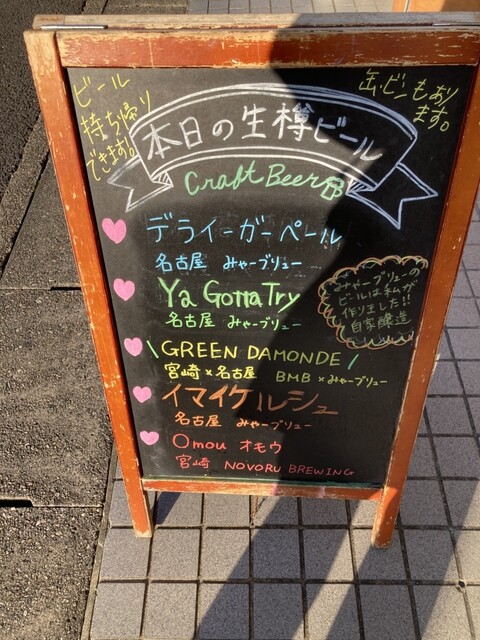 ビール
持ち帰り
できます。
缶・ビンもあり
ます。
本日の生樽ビール
Craft Beer
デライーガーペール
名古屋 みゃーブリュー
Ya Gotta Try
名古屋 みゃーブリュー
みゃーブリューの
ビールは私が
作りました!!
自家醸造
\ GREEN DAMONDE /
宮崎×名古屋 BMB×みゃーブリュー
イマイケルシュ
名古屋 みゃーブリュー
Omou オモウ
宮崎 NOVORU BREWING